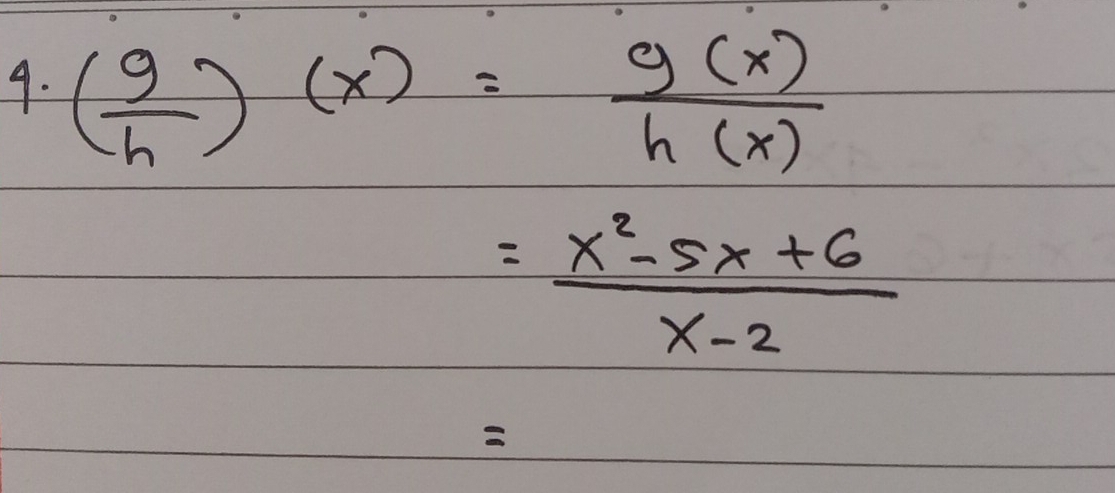 9. (g/h) (x) = g(x)/h(x)
= x²-5x+6/x-2
=